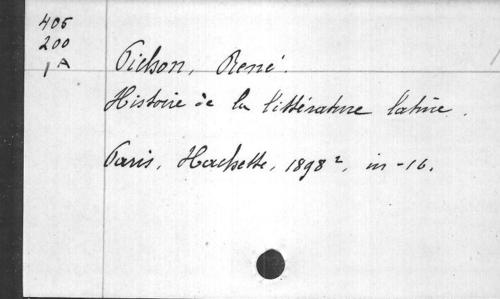 405
200
1 A
Pichon, René.
Histoire de la littérature latine.
Paris, Hachette, 1898², in-16.